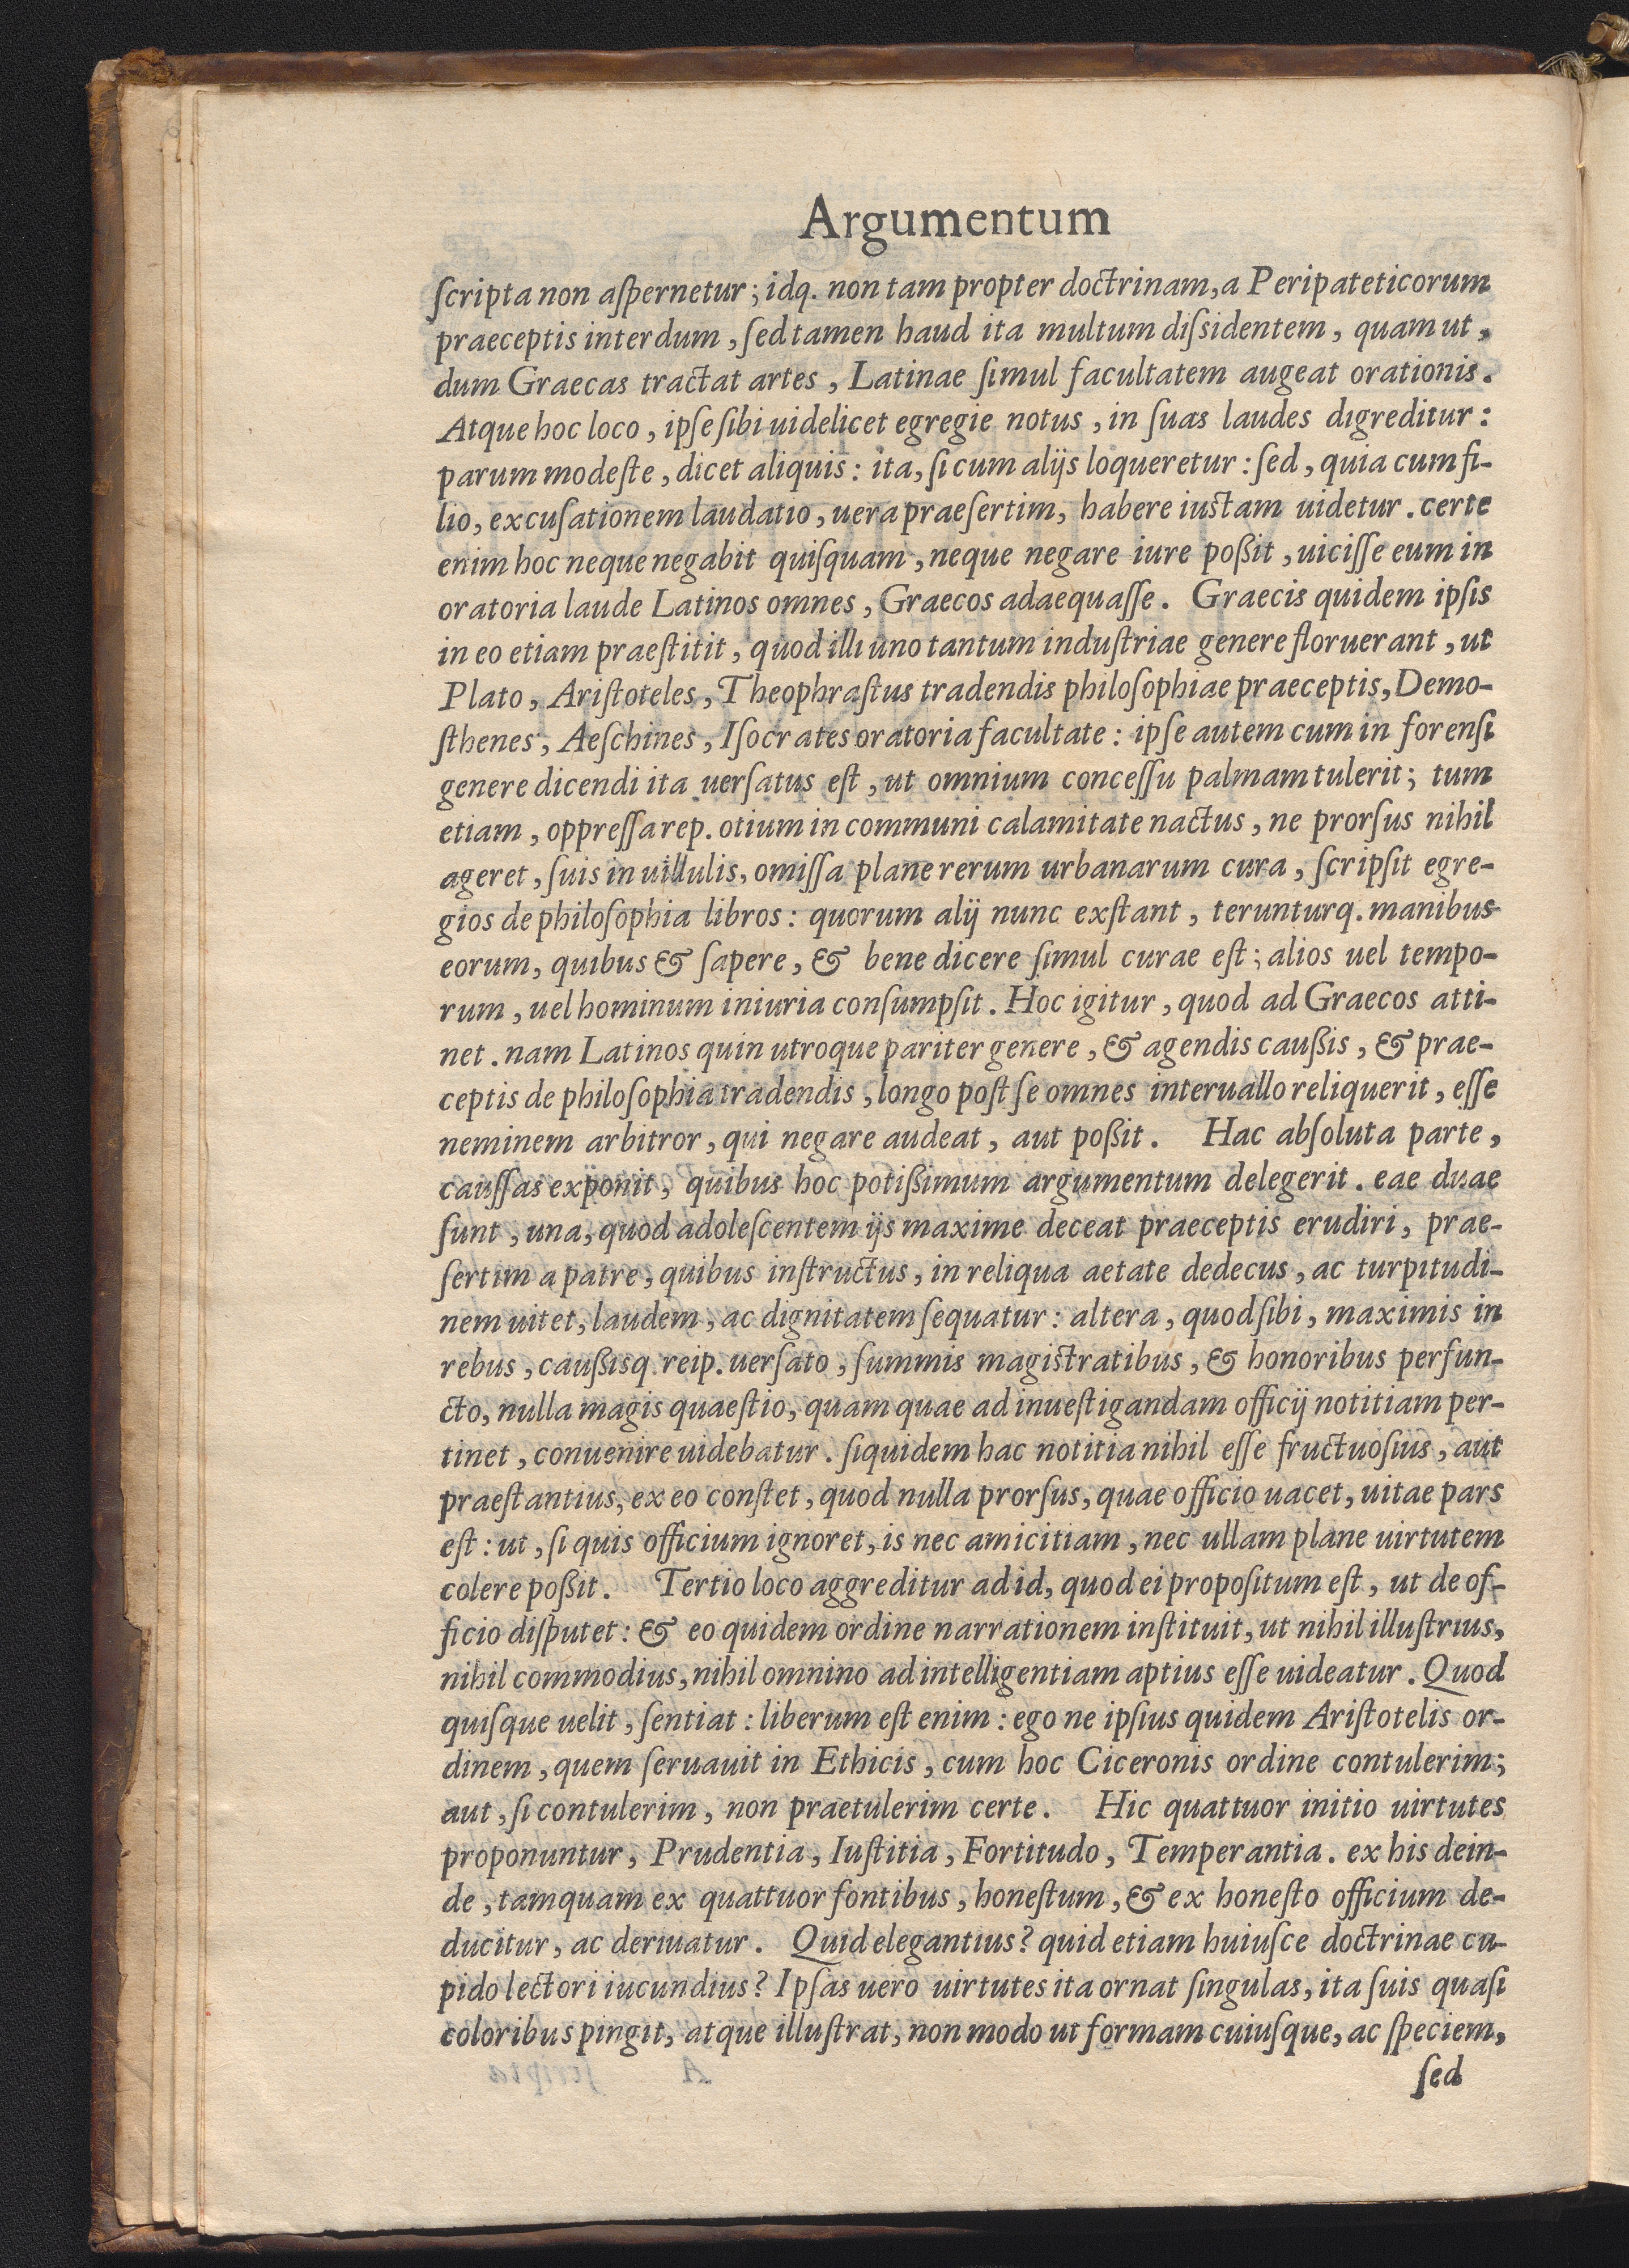 Argumentum
ſcripta non aſpernetur; idq. non tam propter doctrinam, a Peripateticorum
praeceptis interdum, ſed tamen haud ita multum diſsidentem, quam ut,
dum Graecas tractat artes, Latinae ſimul facultatem augeat orationis.
Atque hoc loco, ipſe ſibi uidelicet egregie notus, in ſuas laudes digreditur:
parum modeſte, dicet aliquis: ita, ſi cum alijs loqueretur: ſed, quia cum fi-
lio, excuſationem laudatio, uera praeſertim, habere iuſtam uidetur. certe
enim hoc neque negabit quiſquam, neque negare iure poßit, uiciſſe eum in
oratoria laude Latinos omnes, Graecos adaequaſſe. Graecis quidem ipſis
in eo etiam praeſtitit, quod illi uno tantum induſtriae genere floruerant, ut
Plato, Ariſtoteles, Theophraſtus tradendis philoſophiae praeceptis, Demo-
ſthenes, Aeſchines, Iſocrates oratoria facultate: ipſe autem cum in forenſi
genere dicendi ita uerſatus eſt, ut omnium conceſſu palmam tulerit; tum
etiam, oppreſſa rep. otium in communi calamitate nactus, ne prorſus nihil
ageret, ſuis in uillulis, omiſſa plane rerum urbanarum cura, ſcripſit egre-
gios de philoſophia libros: quorum alij nunc exſtant, terunturq. manibus
eorum, quibus & ſapere, & bene dicere ſimul curae eſt; alios uel tempo-
rum, uel hominum iniuria conſumpſit. Hoc igitur, quod ad Graecos atti-
net. nam Latinos quin utroque pariter genere, & agendis caußis, & prae-
ceptis de philoſophia tradendis, longo poſt ſe omnes interuallo reliquerit, eſſe
neminem arbitror, qui negare audeat, aut poßit. Hac abſoluta parte,
cauſſas exponit, quibus hoc potißimum argumentum delegerit. eae duae
ſunt, una, quod adoleſcentem ijs maxime deceat praeceptis erudiri, prae-
ſertim a patre, quibus inſtructus, in reliqua aetate dedecus, ac turpitudi-
nem uitet, laudem, ac dignitatem ſequatur: altera, quod ſibi, maximis in
rebus, caußisq. reip. uerſato, ſummis magiſtratibus, & honoribus perfun-
cto, nulla magis quaeſtio, quam quae ad inueſtigandam officij notitiam per-
tinet, conuenire uidebatur. ſiquidem hac notitia nihil eſſe fructuoſius, aut
praeſtantius, ex eo conſtet, quod nulla prorſus, quae officio uacet, uitae pars
eſt: ut, ſi quis officium ignoret, is nec amicitiam, nec ullam plane uirtutem
colere poßit. Tertio loco aggreditur ad id, quod ei propoſitum eſt, ut de of-
ficio diſputet: & eo quidem ordine narrationem inſtituit, ut nihil illuſtrius,
nihil commodius, nihil omnino ad intelligentiam aptius eſſe uideatur. Quod
quiſque uelit, ſentiat: liberum eſt enim: ego ne ipſius quidem Ariſtotelis or-
dinem, quem ſeruauit in Ethicis, cum hoc Ciceronis ordine contulerim;
aut, ſi contulerim, non praetulerim certe. Hic quattuor initio uirtutes
proponuntur, Prudentia, Iuſtitia, Fortitudo, Temperantia. ex his dein-
de, tamquam ex quattuor fontibus, honeſtum, & ex honeſto officium de-
ducitur, ac deriuatur. Quid elegantius? quid etiam huiuſce doctrinae cu-
pido lectori iucundius? Ipſas uero uirtutes ita ornat ſingulas, ita ſuis quaſi
coloribus pingit, atque illuſtrat, non modo ut formam cuiuſque, ac ſpeciem,
ſed